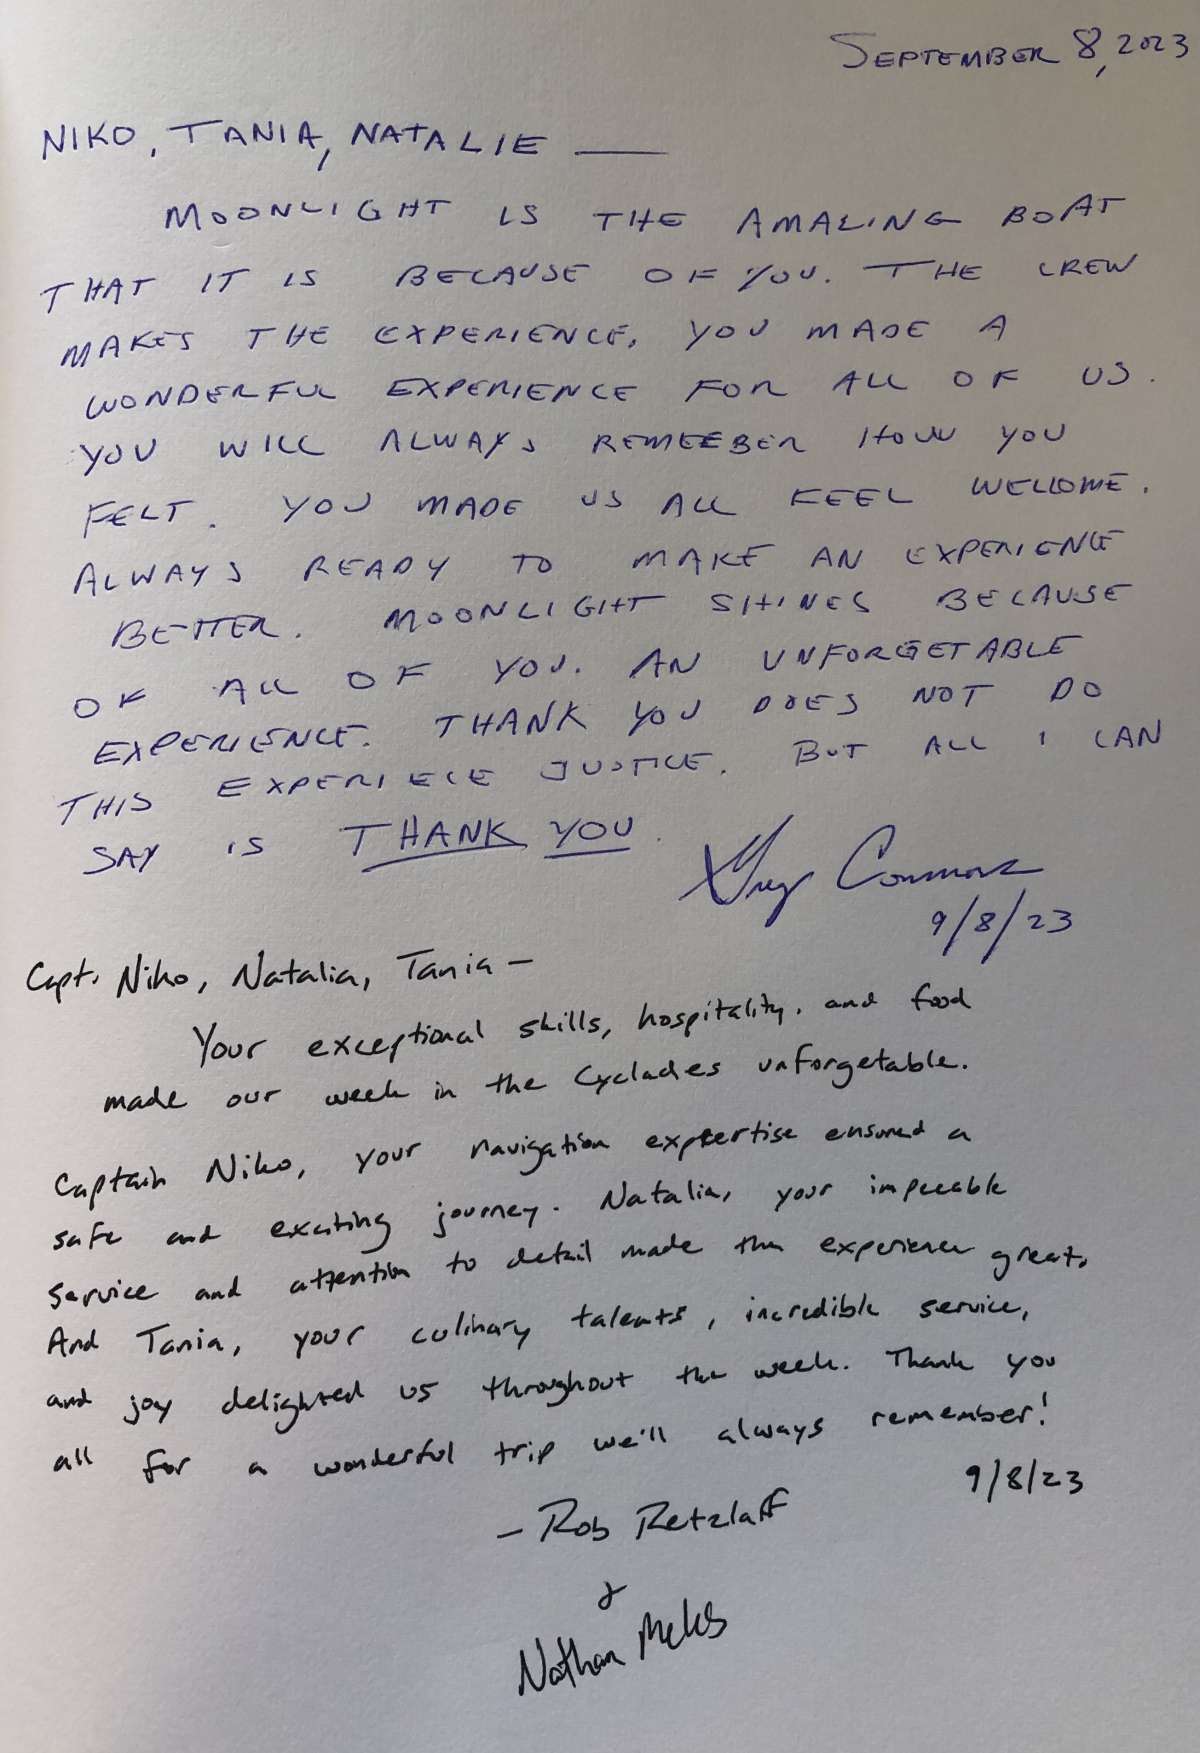 SEPTEMBER 8, 2023
NIKO, TANIA, NATALIE —
MOONLIGHT IS THE AMAZING BOAT
THAT IT IS BECAUSE OF YOU. THE CREW
MAKES THE EXPERIENCE, YOU MADE A
WONDERFUL EXPERIENCE FOR ALL OF US.
YOU WILL ALWAYS REMEEBER HOW YOU
FELT. YOU MADE US ALL FEEL WELCOME.
ALWAYS READY TO MAKE AN EXPERIENCE
BETTER. MOONLIGHT SHINES BECAUSE
OF ALL OF YOU. AN UNFORGETABLE
EXPERIENCE. THANK YOU DOES NOT DO
THIS EXPERIECE JUSTICE. BUT ALL I CAN
SAY IS THANK YOU.
Greg
9/8/23
Capt. Niko, Natalia, Tania —
Your exceptional skills, hospitality, and food
made our week in the Cyclades unforgetable.
Captain Niko, your navigation expertise ensured a
safe and exciting journey. Natalia, your impeccable
service and attention to detail made the experience great.
And Tania, your culinary talents, incredible service,
and joy delighted us throughout the week. Thank you
all for a wonderful trip we'll always remember!
9/8/23
— Rob Retzlaff
&
Nathan